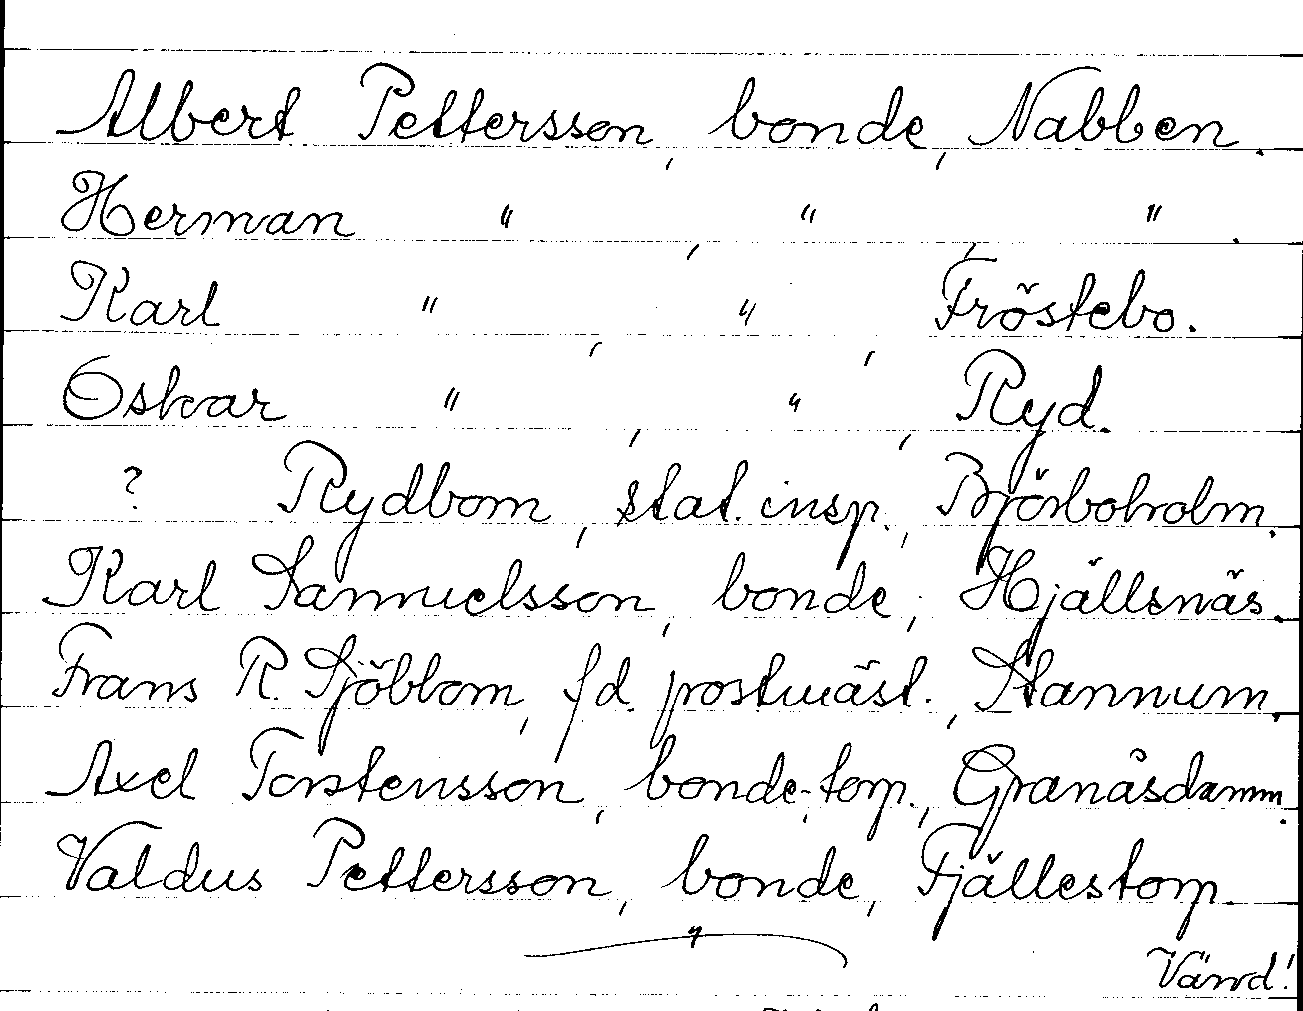 Albert Pettersson, bonde, Nabben.
Herman " , " , " .
Karl " , " , Fröstebo.
Oskar " , " , Ryd.
? Rydbom, stat. insp., Björboholm.
Karl Samuelsson, bonde, Hjällsnäs.
Frans R. Sjöblom, fd. postmäst., Stannum.
Axel Torstensson, bonde-torp., Granäsdamm.
Valdus Pettersson, bonde, Fjällestorp.
"
Vänd!